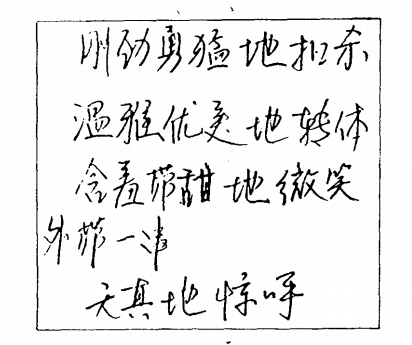 刚劲勇猛地扣杀
温雅优美地转体
含羞带甜地微笑
外带一清
天真地惊呼